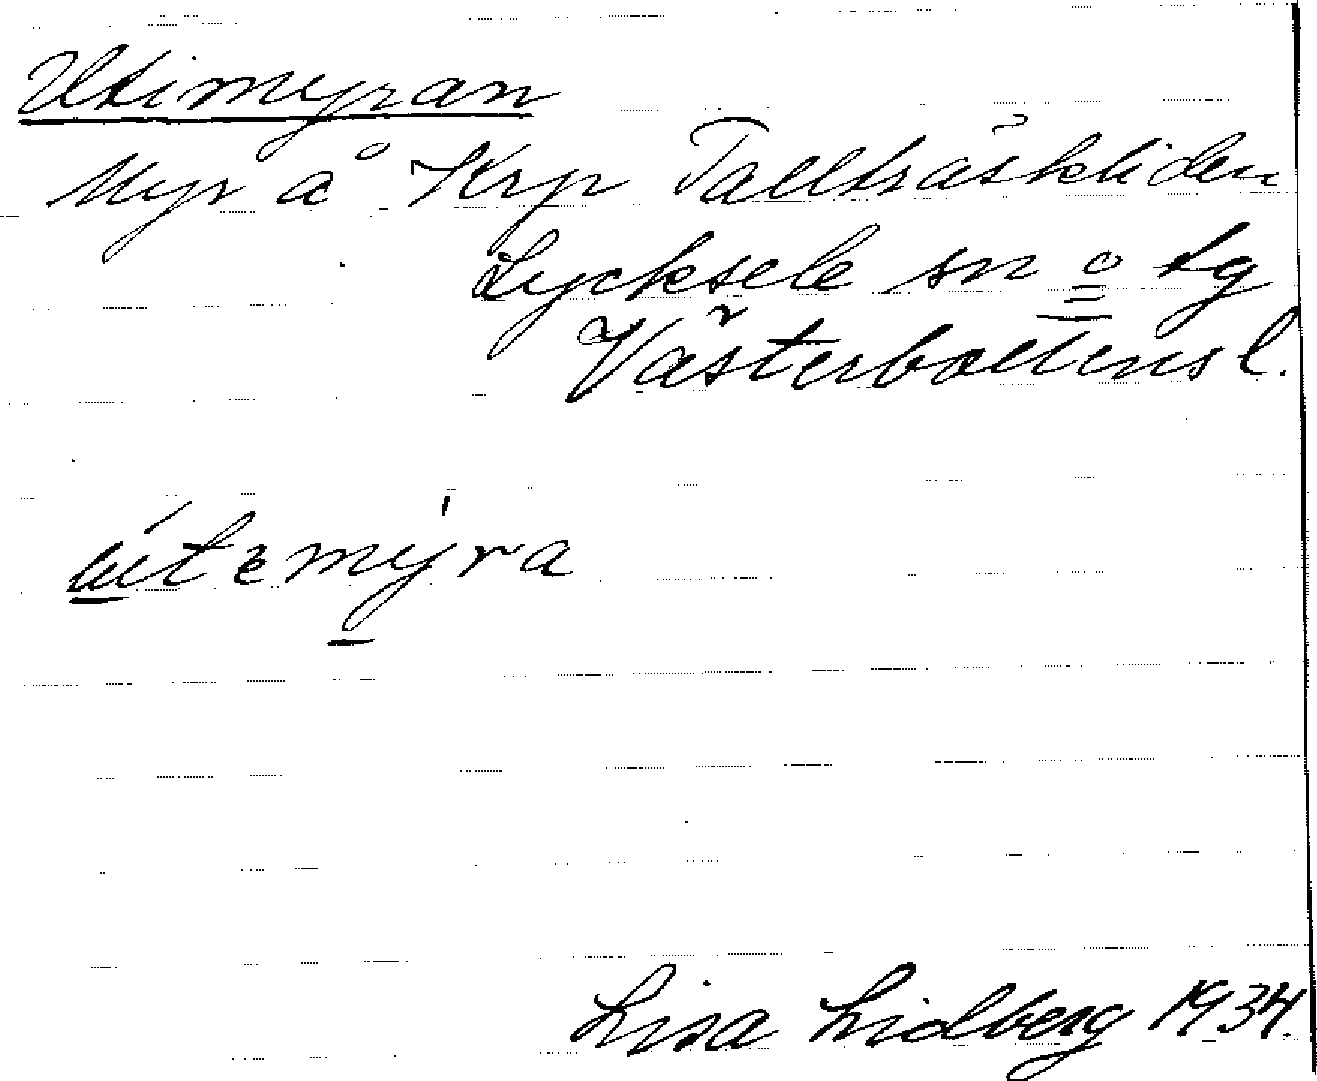 Utimyran
Myr å Krp Tallträskliden
Lycksele sn o lg
Västerbottens l.
útemýra
Lisa Lidberg 1934.